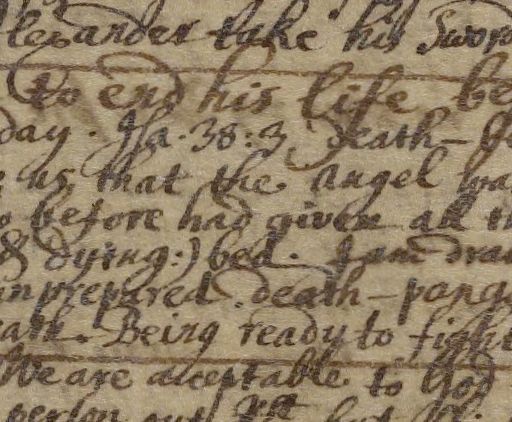 lexander take his Sword
to end his life be
day. Isa. 38:3 death-
us, that the Angel wa
before had given all th
& dying:) bed. I am draw
unprepared. death-pangs
. Being ready to fight
We are acceptable to God
person out but